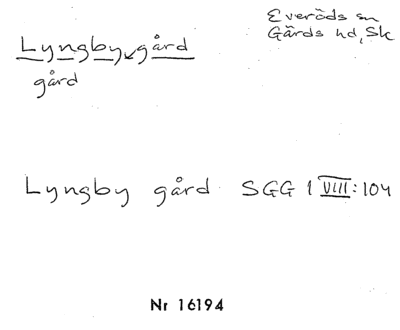 Lyngby gård
gård
Everöds sn
Gärds hd, Sk
Lyngby gård SGG 1 VIII:104
Nr 16194